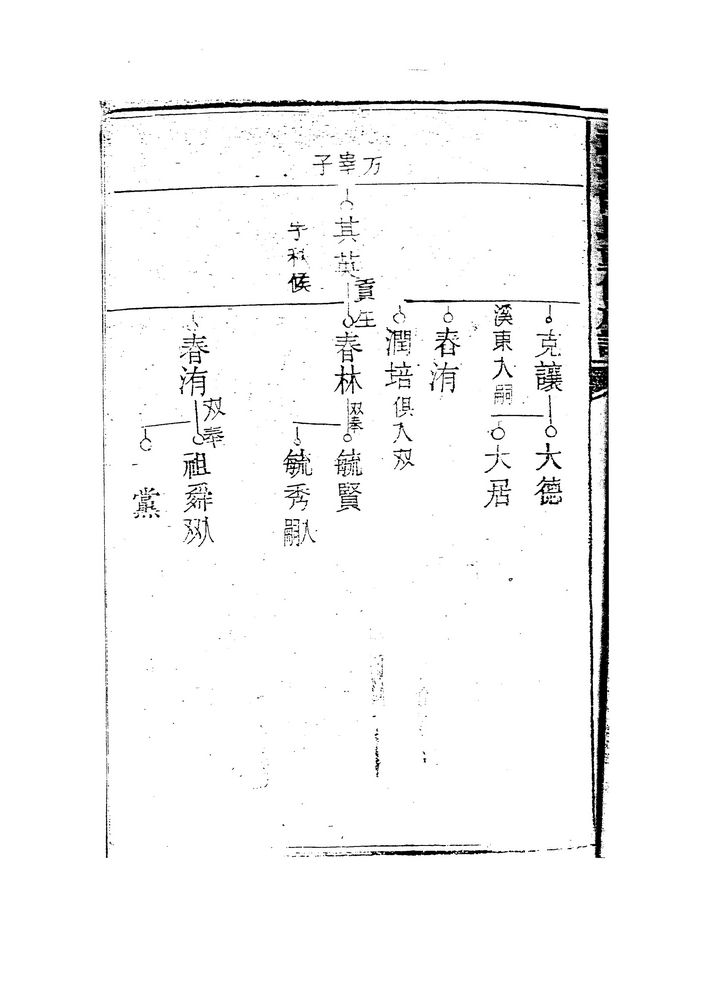 子峷万
克讓
大德
溪東入嗣
大居
春洧
潤培俱入双
其英貢生
字秋候
春林双奉
毓賢
毓秀入嗣
春洧双奉
祖舜双入
黨